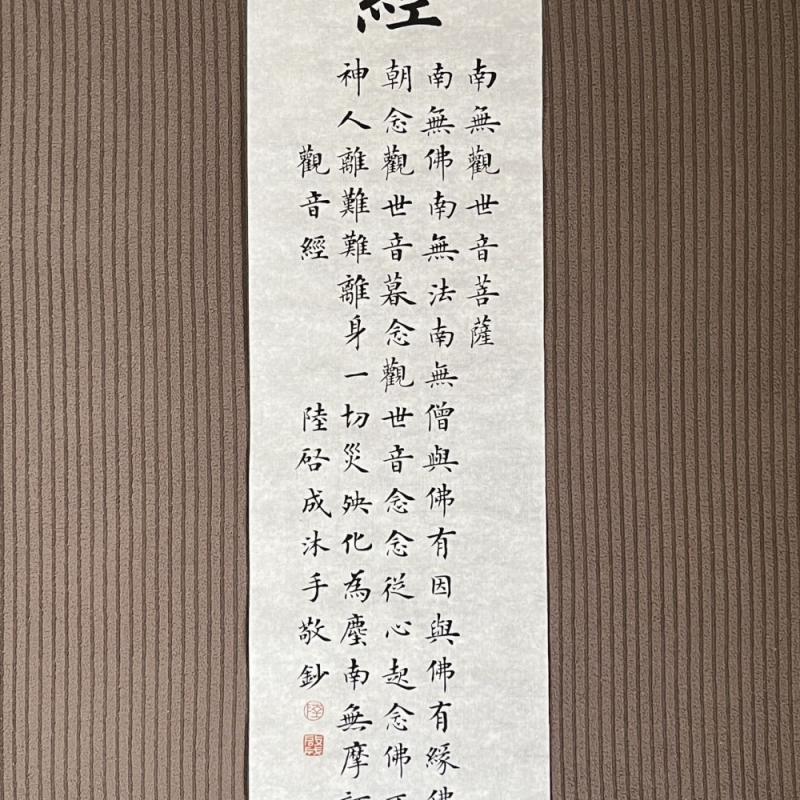 經
南無觀世音菩薩
南無佛南無法南無僧與佛有因與佛有緣佛
朝念觀世音暮念觀世音念念從心起念佛不
神人離難難離身一切災殃化為塵南無摩訶
觀音經 陸啓成沐手敬鈔